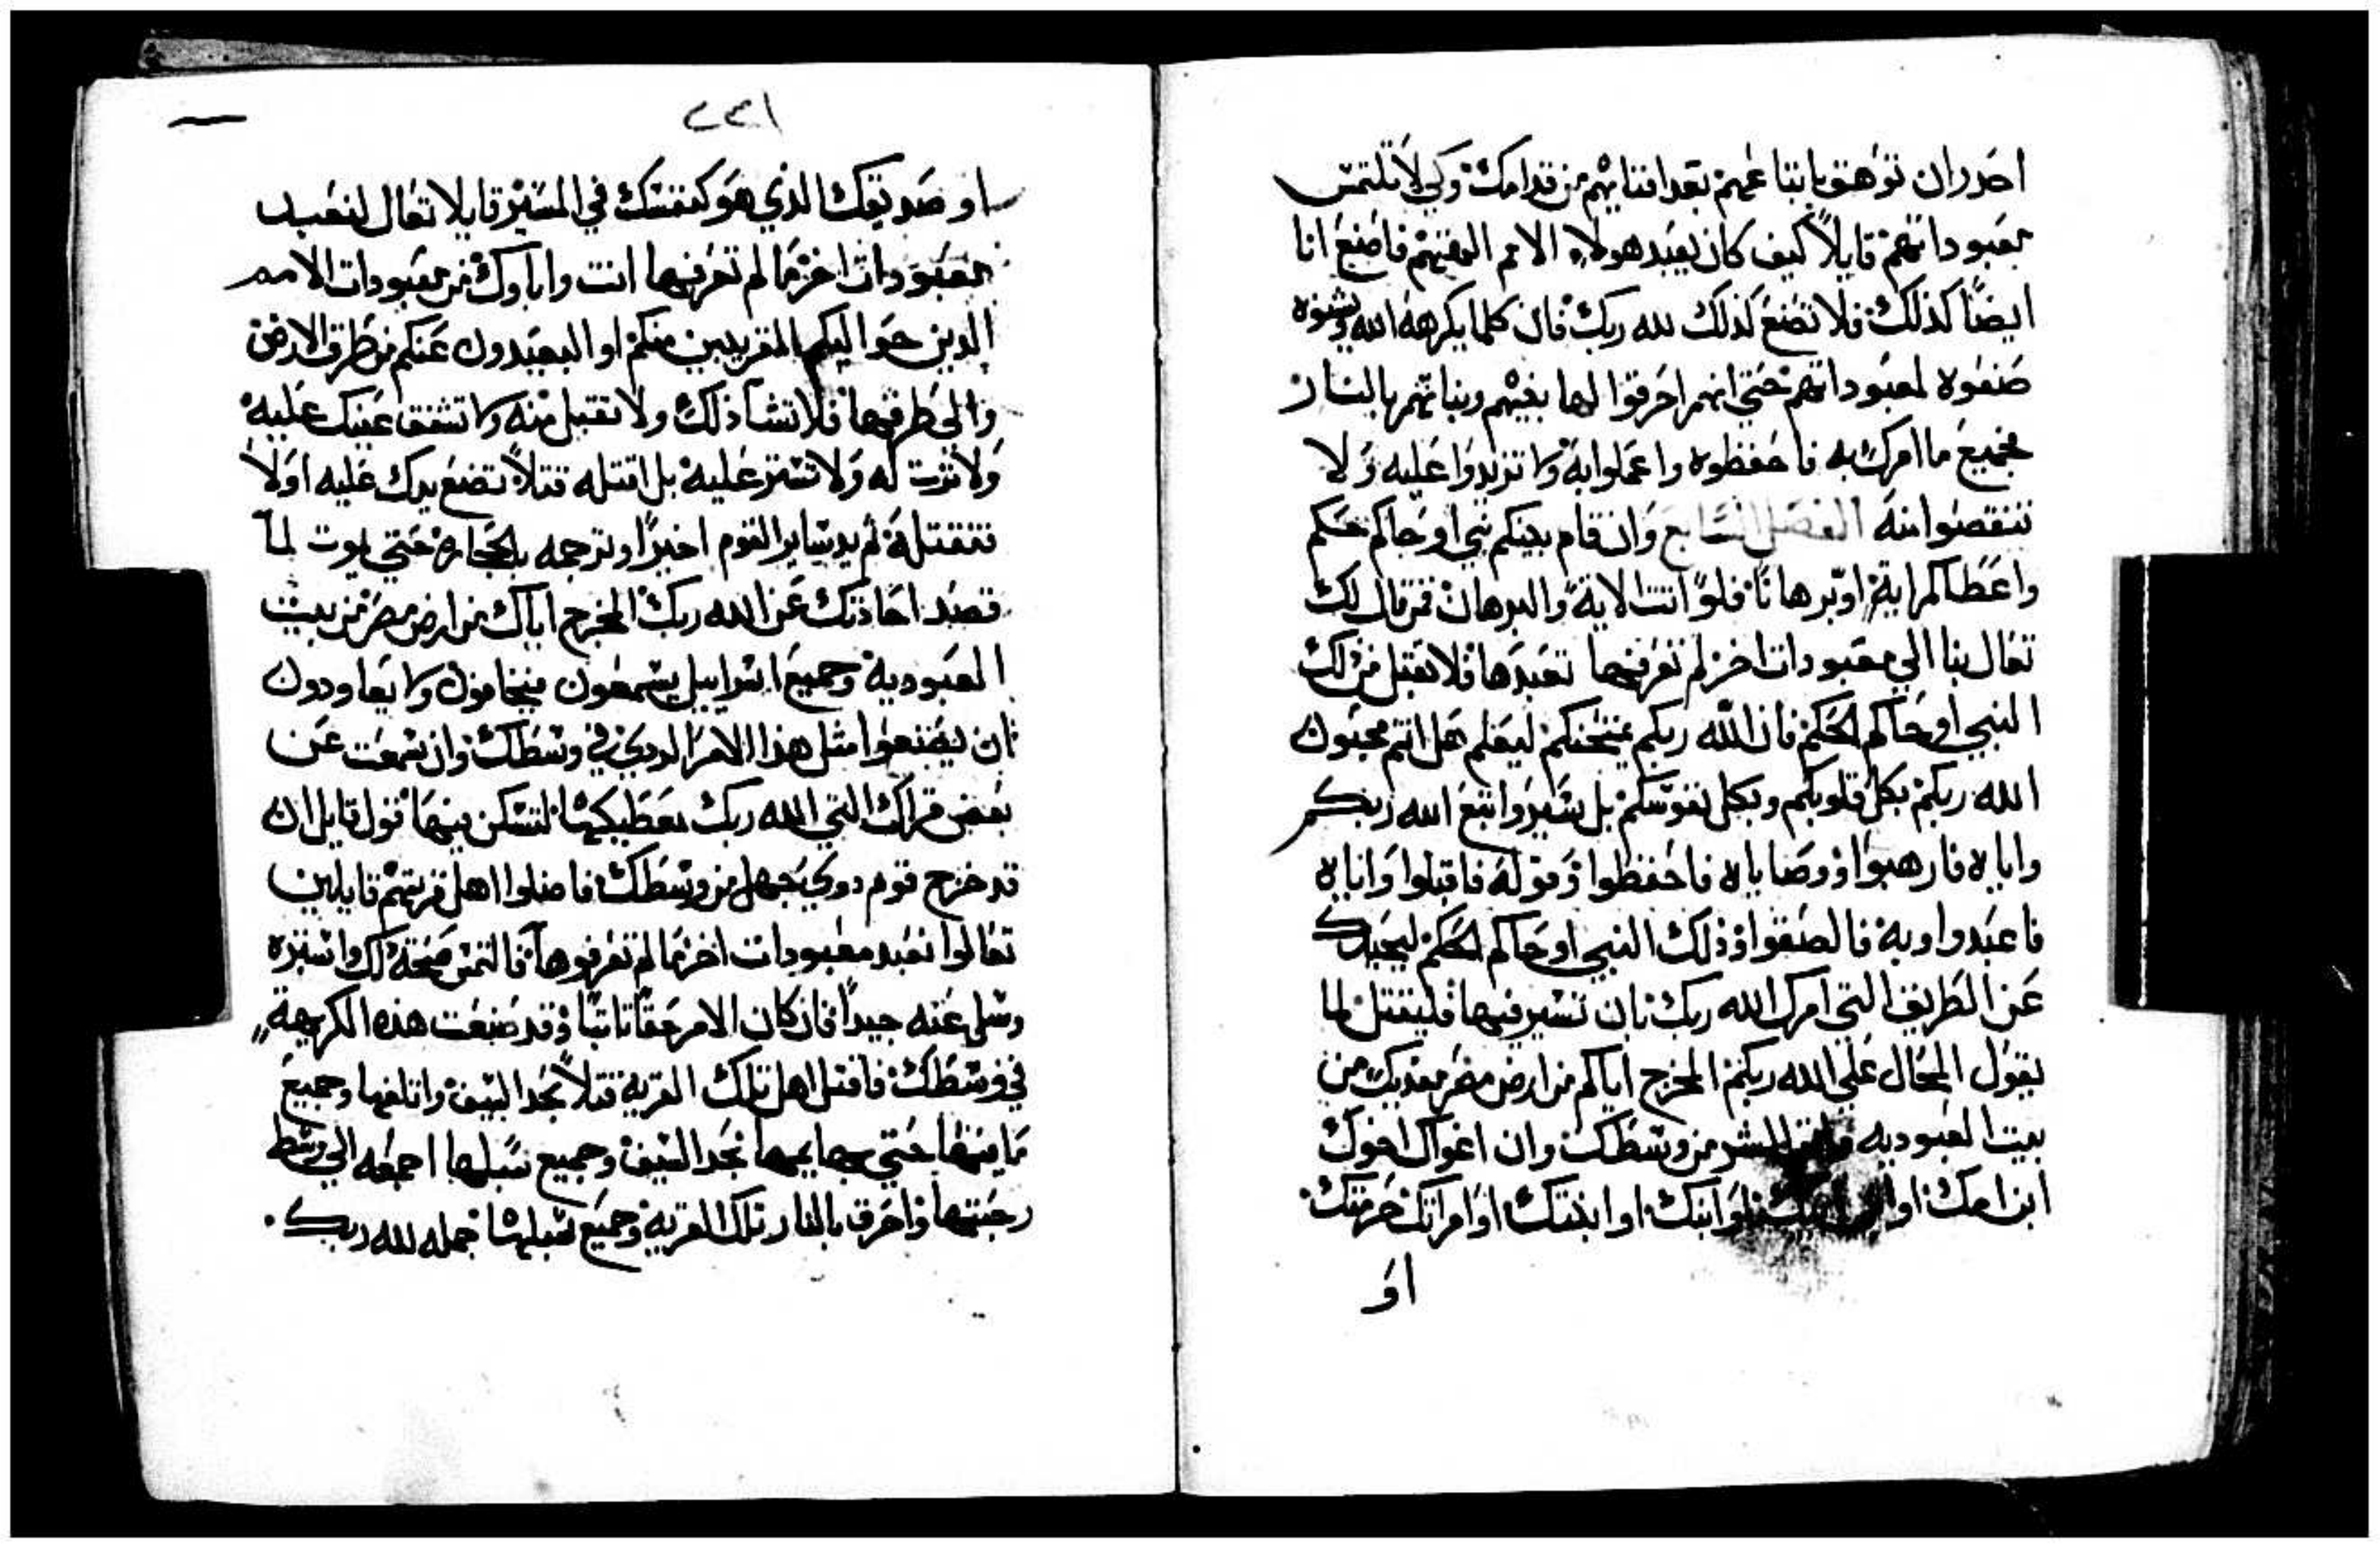 احدر ان توهق باتباعهم بعد افنايهم من قدامك وكي لا تلتمس
معبوداتهم قايلاً كيف كان يعبد هولاء الامم الهتهم فاصنع انا
ايضًا كذلك فلا تصنع كذلك لله ربك فان كلما يكرهه الله ويشنوه
صنعوه لمعبوداتهم حتي انهم احرقوا لها بنيهم وبناتهم بالنار
جميع ما امرك به فاحفظوه واعملوا به ولا تزيدوا عليه ولا
تنقصوا منه الفصل السابع وان قام بينكم نبي او حاكم حكم
واعطاكم اية او برهانًا فلو اتت الاية والبرهان فمن قال لك
تعال بنا الي معبودات اخر لم تعرفها تعبدها فلا تقبل من ذلك
النبي او حاكم الحكم فان الله ربكم يمتحنكم ليعلم هل انتم محبون
الله ربكم بكل قلوبكم وبكل نفوسكم بل سيروا تتبع الله ربكم
واياه فارهبوا ووصاياه فاحفظوا وقوله فاقبلوا واياه
فاعبدوا وبه فالصقوا وذلك النبي او حاكم الحكم ليحيدك
عن الطريق التي امرك الله ربك بان تسير فيها فليقتل لما
يقول المحال علي الله ربكم المخرج اياكم من ارض مصر مفديك من
بيت العبوديه الشر من وسطك وان اغواك اخوك
ابن امك او او ابنك او ابنتك او امراتك حرمتك
او
٢٢١
او صديقك الذي هو كنفسك في المستتر قايلا تعال لنعبد
معبودات اخر مما لم تعرفها انت واباوك من معبودات الامم
الدين حواليكم القريبين منكم او البعيدون عنكم من طرف الارض
والي طرفها فلا تشا ذلك ولا تقبل منه ولا تشفق عينك عليه
ولا ترت له ولا تستر عليه بل اقتله قتلاً تضع يدك عليه اولاً
فتقتله ثم يد ساير القوم اخيرًا وترجمه بالحجاره حتي يموت لما
قصد احادتك عن الله ربك المخرج اياك من ارض مصر من بيت
العبودية وجميع اسراييل يسمعون فيخافون ولا يعاودون
ان يصنعوا مثل هذا الامر الردي في وسطك وان سمعت عن
بعض قراك التي الله ربك معطيكها لتسكن فيها قول قايل ان
قد خرج قوم دوي جهل من وسطك فاضلوا اهل قريتهم قايلين
تعالوا نعبد معبودات اخر مما لم تعرفوها فالتمس صحة ذلك واستبره
وسل عنه جيدًا فان كان الامر حقًا ثابتًا وقد صنعت هذه الكريهة
في وسطك فاقتل اهل تلك القريه قتلاً بحد السيف واتلفها وجميع
ما فيها حتي بهايمها بحد السيف وجميع سلبها اجمعه الي وسط
رحبتها واحرق بالنار تلك القريه وجميع سلبها جمله لله ربك